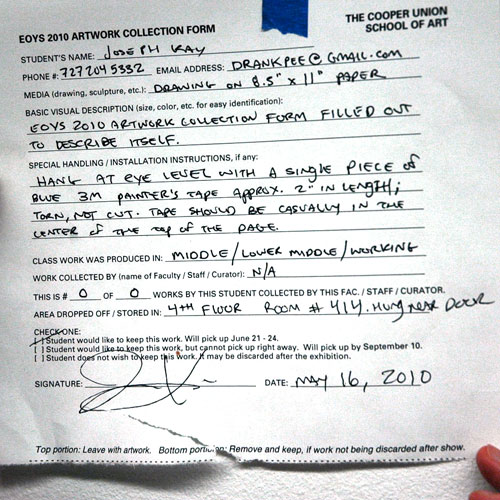 EOYS 2010 ARTWORK COLLECTION FORM
THE COOPER UNION
SCHOOL OF ART
STUDENT'S NAME: JOSEPH KAY
PHONE #: 7272045332 EMAIL ADDRESS: DRANKPEE@GMAIL.COM
MEDIA (drawing, sculpture, etc.): DRAWING ON 8.5" x 11" PAPER
BASIC VISUAL DESCRIPTION (size, color, etc. for easy identification):
EOYS 2010 ARTWORK COLLECTION FORM FILLED OUT
TO DESCRIBE ITSELF.
SPECIAL HANDLING / INSTALLATION INSTRUCTIONS, if any:
HANG AT EYE LEVEL WITH A SINGLE PIECE OF
BLUE 3M PAINTER'S TAPE APPROX. 2" IN LENGTH;
TORN, NOT CUT. TAPE SHOULD BE CASUALLY IN THE
CENTER OF THE TOP OF THE PAGE.
CLASS WORK WAS PRODUCED IN: MIDDLE/LOWER MIDDLE/WORKING
WORK COLLECTED BY (name of Faculty / Staff / Curator): N/A
THIS IS # 0 OF 0 WORKS BY THIS STUDENT COLLECTED BY THIS FAC. / STAFF / CURATOR.
AREA DROPPED OFF / STORED IN: 4TH FLOOR ROOM # 414. HUNG NEAR DOOR
CHECK ONE:
[ ] Student would like to keep this work. Will pick up June 21 - 24.
[ ] Student would like to keep this work, but cannot pick up right away. Will pick up by September 10.
[ ] Student does not wish to keep this work. It may be discarded after the exhibition.
SIGNATURE: DATE: MAY 16, 2010
Top portion: Leave with artwork. Bottom portion: Remove and keep, if work not being discarded after show.